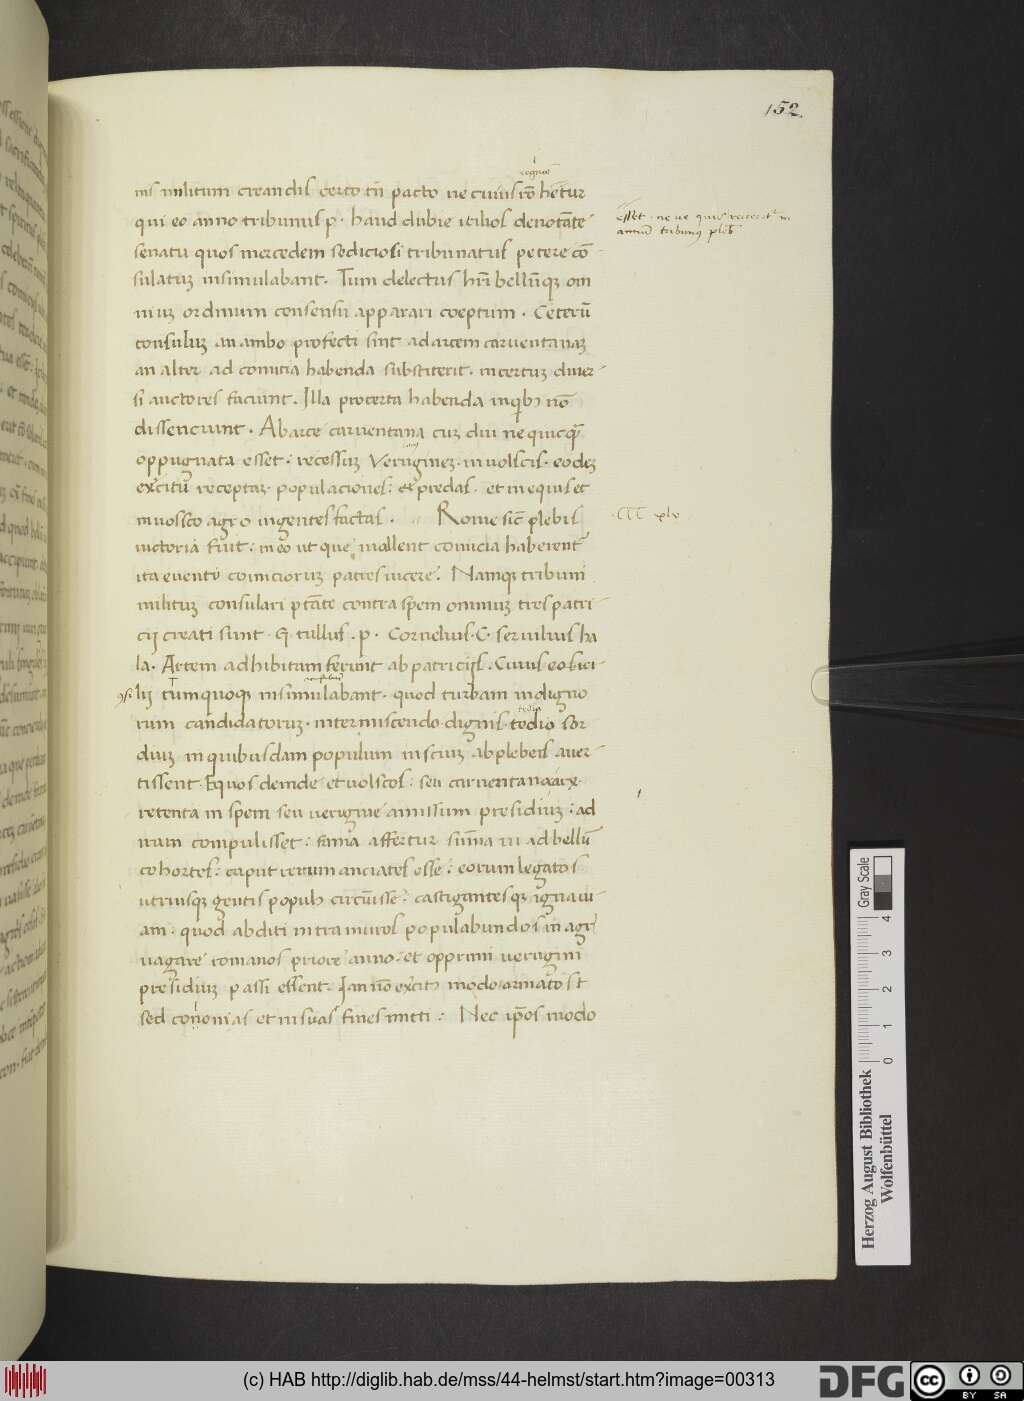 152.
nis militum creandis certo tñ pacto ne cuius rõ hẽtur
qui eo anno tribunus p· haud dubie icilios denotãte
senatu quos mercedem sediciosi tribunatus petere cõ
sulatuʒ insimulabant. Tum delectus hr̃i bellũqʒ om
niuʒ ordinum consensu apparari coeptum. Ceterũ
consuluʒ an ambo profecti sint ad arcem carventanaʒ
an alter ad comitia habenda substiterit. incertuʒ diuer
si auctores faciunt. Illa pro certa habenda in qibʒ nõ
dissenciunt. Ab arce carventana cuʒ diu nequicq̃
oppugnata esset: recessuʒ Verugineʒ· in volscis· eodeʒ
exercitũ receptaʒ· populaciones: et predas· et in equis et
in vosco agro ingentes factas. Rome sic̃ plebis
uictoria fuit: in eo ut que mallent comicia haberent
ita eventu comiciorʒ patres uicere. Namqʒ tribuni
militum consulari p̃tãte contra spem omniuʒ tres patri
cij creati sunt· Q tullus. p. Cornelius· C· servilius ha
la. Artem adhibitam ferunt ab patricijs. Cuius eos ici
lij tum quoqʒ insimulabant. quod turbam indigno
rum candidatoruʒ· intermiscendo dignis· tedio sor
diuʒ in quibusdam populum insciuʒ ab plebeis aver
tissent· Equos deinde et volscos: seu carventana arx·
retenta in spem seu verugine amissum presidiuʒ: ad
iram compulisset: fama affertur sum̃a ui ad bellũ
cohortes: caput rerum anciates esse: eorum legatos
utriusqʒ gentis populos circũisse: castigantesqʒ ignavi
am· quod abditi intra muros populabundos in agr
vagare romanos priore anno: et opprimi verugini
presidiuʒ passi essent. Iam nõ excitʒ modo armatos st
sed colonias et in suas fines mitti: Nec ip̃os modo
esset· ne ue quis reiceret in
annũ tribunus pleb